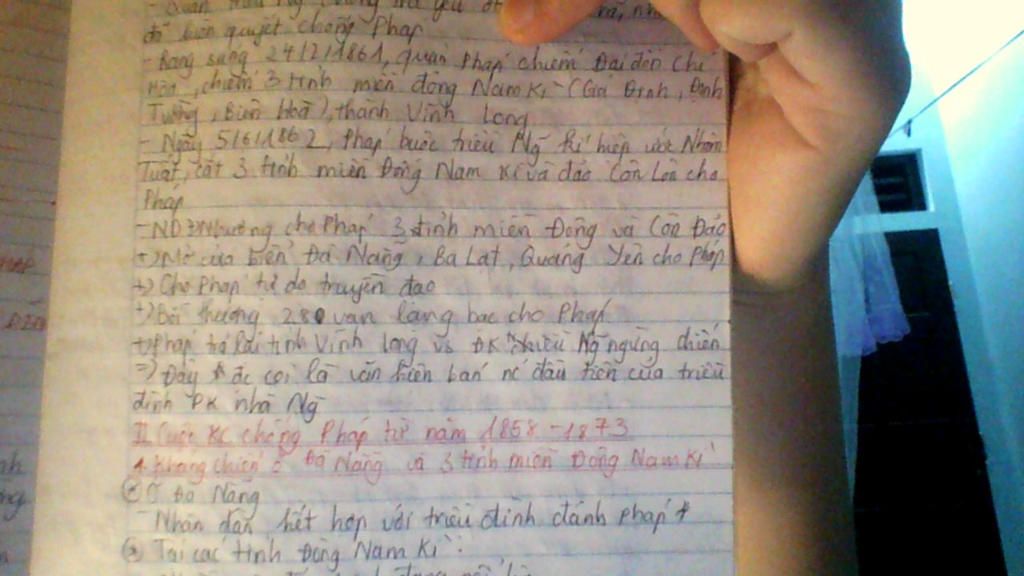 - Quân
đã kiên quyết chống Pháp
- Rạng sáng 24/2/1861, quân Pháp chiếm Đại đồn Chí
Hòa, chiếm 3 tỉnh miền đông Nam Kì (Gia Định, Định
Tường, Biên Hoà), thành Vĩnh Long
- Ngày 5/6/1862, Pháp buộc triều Ng~ kí hiệp ước Nhâm
Tuất, cắt 3 tỉnh miền Đông Nam Kì và đảo Côn Lôn cho
Pháp
- ND: +) Nhường cho Pháp 3 tỉnh miền Đông và Côn Đảo
+) Mở cửa biển Đà Nẵng, Ba Lạt, Quảng Yên cho Pháp
+) Cho Pháp tự do truyền đạo
+) Bồi thường 280 vạn lạng bạc cho Pháp
+) Pháp trả lại tỉnh Vĩnh Long vs ĐK triều Ng~ ngừng chiến
=> Đây đc coi là văn kiện bán nc đầu tiên của triều
đình PK nhà Ng~
II. Cuộc KC chống Pháp từ năm 1858 - 1873
1. Kháng chiến ở Đà Nẵng và 3 tỉnh miền Đông Nam Kì
Ở Đà Nẵng
- Nhân dân kết hợp với triều đình đánh Pháp
Tại các tỉnh Đông Nam Kì: